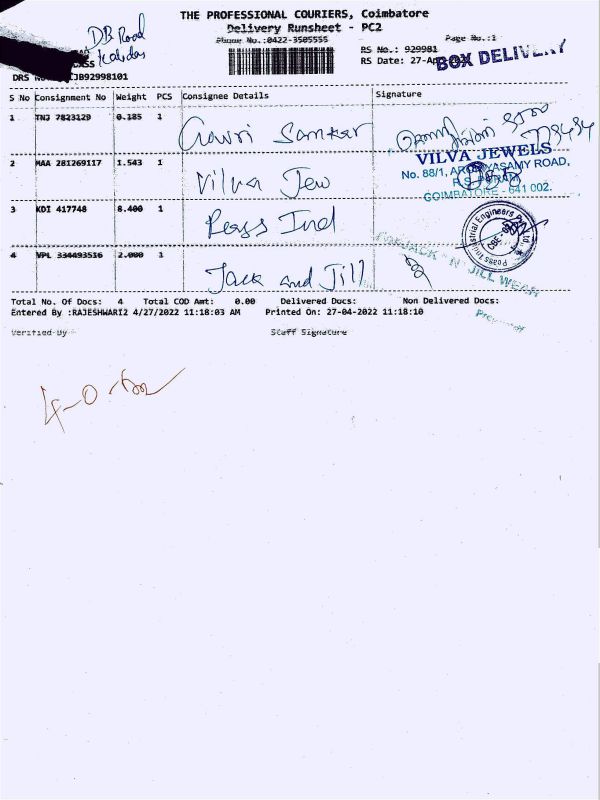 THE PROFESSIONAL COURIERS, Coimbatore
Delivery Runsheet - PC2
Phone No.:0422-3505555
Page No.:1
DB Road
RS No.: 929981
BOX DELIVERY
RS Date: 27-Ap
DRS
JB92998101
S No Consignment No Weight PCS Consignee Details Signature
1 TNJ 7823129 0.185 1 Gowri Sankar
2 MAA 281269117 1.543 1 Vilva Jew
VILVA JEWELS
No. 88/1, AROKIYASAMY ROAD,
R.S. PURAM
COIMBATORE - 641 002.
3 KDI 417748 8.400 1 Peass Ind
Peass Industrial Engineers Pvt Ltd.
CBE
4 VPL 334493536 2.000 1 Jack and Jill
For JACK - N - JILL WEAR
Proprietor
Total No. Of Docs: 4 Total COD Amt: 0.00 Delivered Docs: Non Delivered Docs:
Entered By :RAJESHWARI2 4/27/2022 11:18:03 AM Printed On: 27-04-2022 11:18:10
Verified By Staff Signature